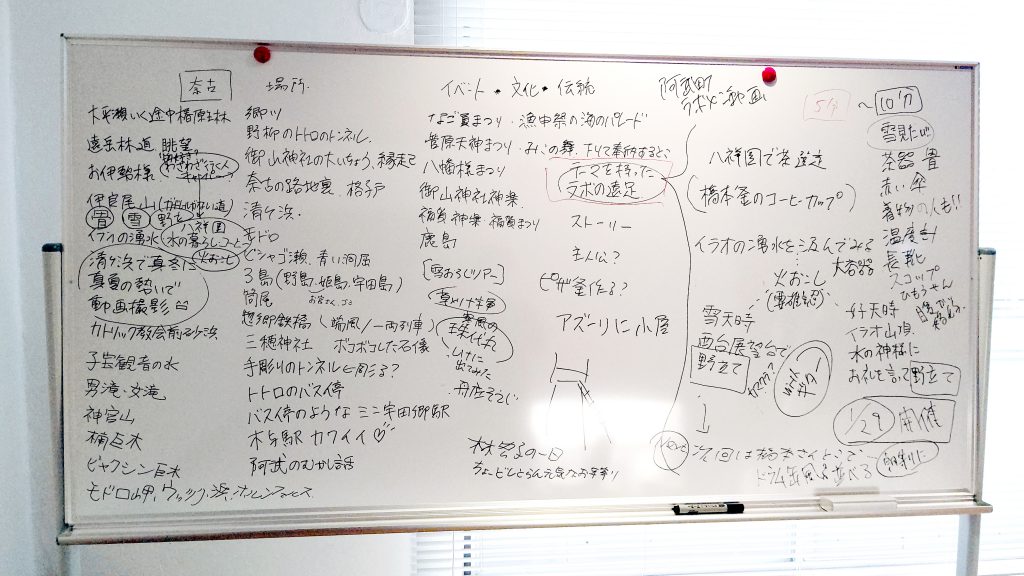 奈古
大平瀬いく途中橋原志林
遠岳林道 眺望
お伊勢様
伊良尾山
畳 雪 野立
八祥園
イラオの湧水 水の暮らし
火おこし
清ヶ浜で真冬に
真夏の勢いで
動画撮影
カトリック教会前
子宝観音の水
男滝・女滝
神宮山
楠巨木
ビャクシン巨木
モドロ岬、
場所
郷川
野柳のトトロのトンネル
御山神社の大いちょう、縁起
奈古の路地裏 格子戸
清ヶ浜
モドロ
ビシャゴ瀬、青い洞窟
3島(野島、姫島、宇田島)
筒尾
惣郷鉄橋(端風/一両列車)
三穂神社 ボコボコした石像
手彫りのトンネルと彫る?
トトロのバス停
バス停のような ミニ宇田郷駅
木与駅 カワイイ♡
阿武のむかし話
イベント・文化・伝統
なご夏まつり・漁中祭の海のパレード
菅原天神まつり・みこの舞、
八幡様まつり
御山神社神楽
福賀神楽・福賀まつり
鹿島
[雪おろしツアー]
しけに
出てみた
丹庄そうじ
林さんの一日
テーマを持った
ラボの遠足
ストーリー
主人公?
ピザ釜作る?
アズーリに小屋
阿武町
ラボと動画
5分 〜 10分
八祥園で茶選定
(橋本釜のコーヒーカップ)
イラオの湧水を汲んでみる
大容器
火おこし
雪天時
西台展望台で
野立て
↓
ギター
次回は橋本さんといで…
ドラム缶風呂並べる
雪見たび
茶器 畳
赤い傘
着物の人も!!
温度計
長靴
スコップ
ひもうせん
好天時
イラオ山頂
水の神様に
お礼を言って野立て
1/29 開催